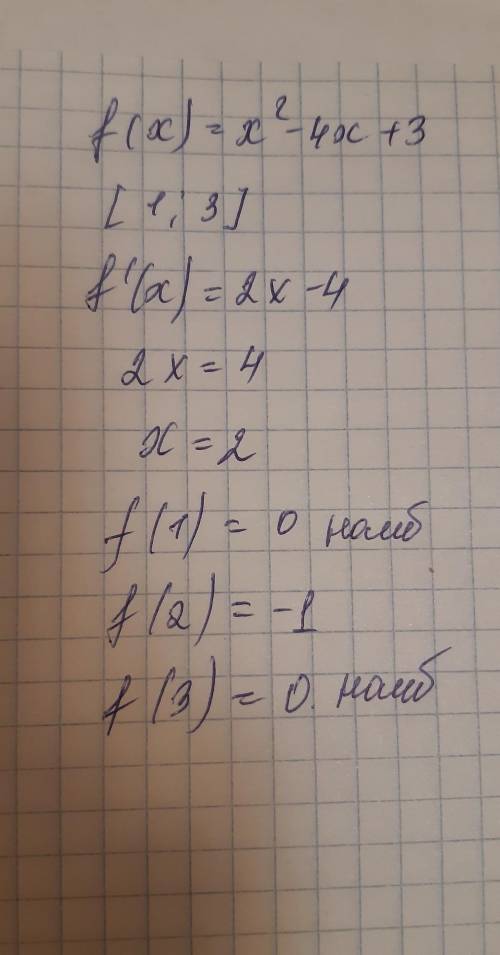 f(x) = x² - 4x + 3
[1; 3]
f'(x) = 2x - 4
2x = 4
x = 2
f(1) = 0 наиб
f(2) = -1
f(3) = 0. наиб